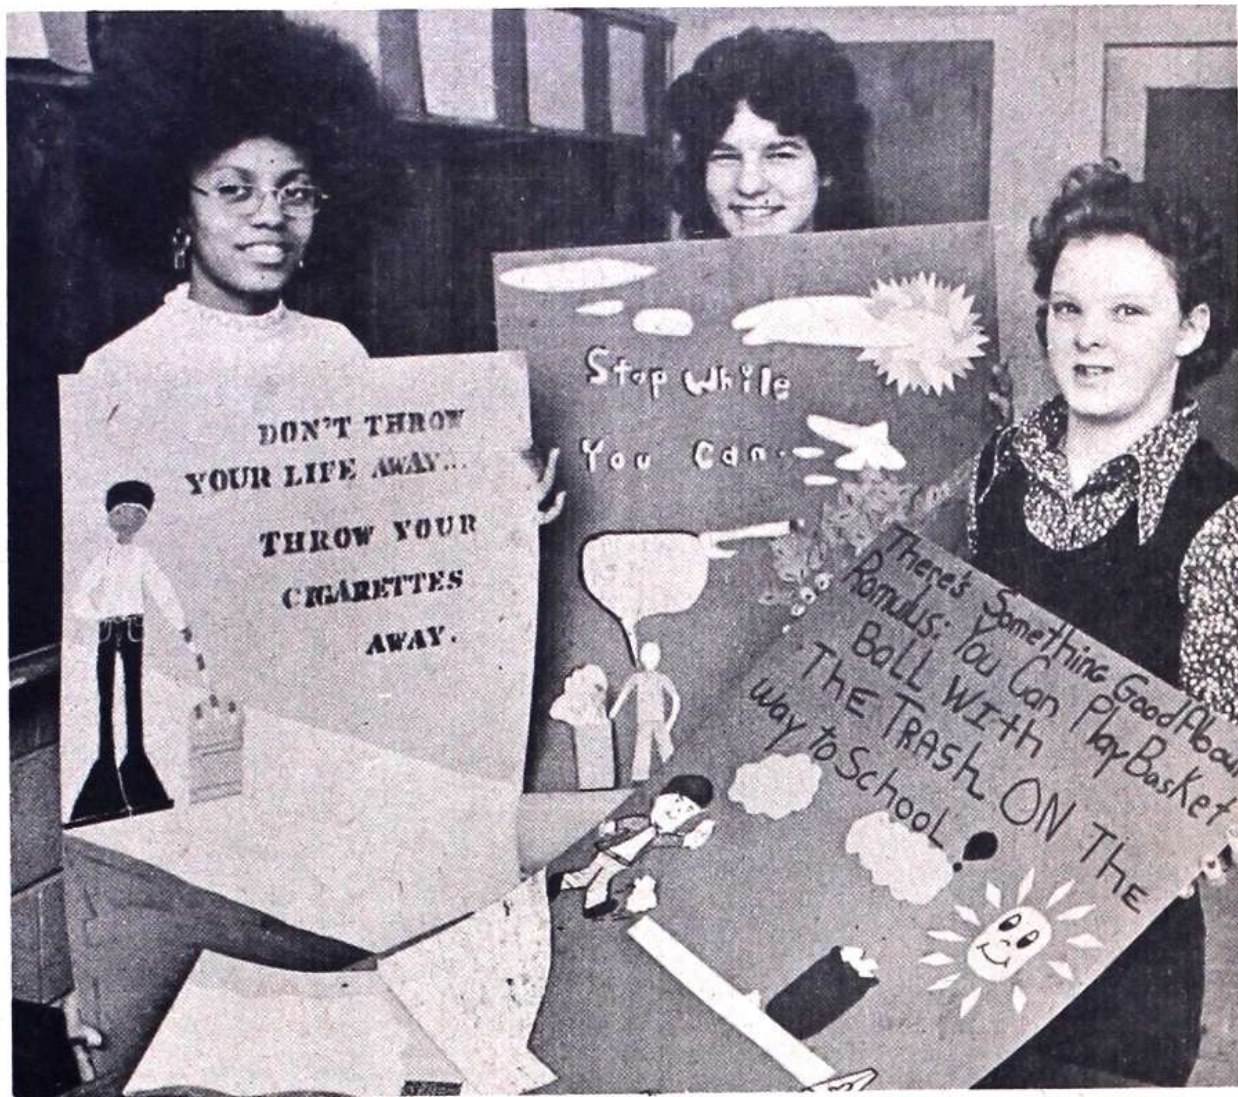 DON'T THROW
YOUR LIFE AWAY...
THROW YOUR
CIGARETTES
AWAY.
Stop While
You Can..
There's Something Good About
Romulus: You Can Play Basket
BaLL WITH
THE TRASh ON The
way to SchooL!